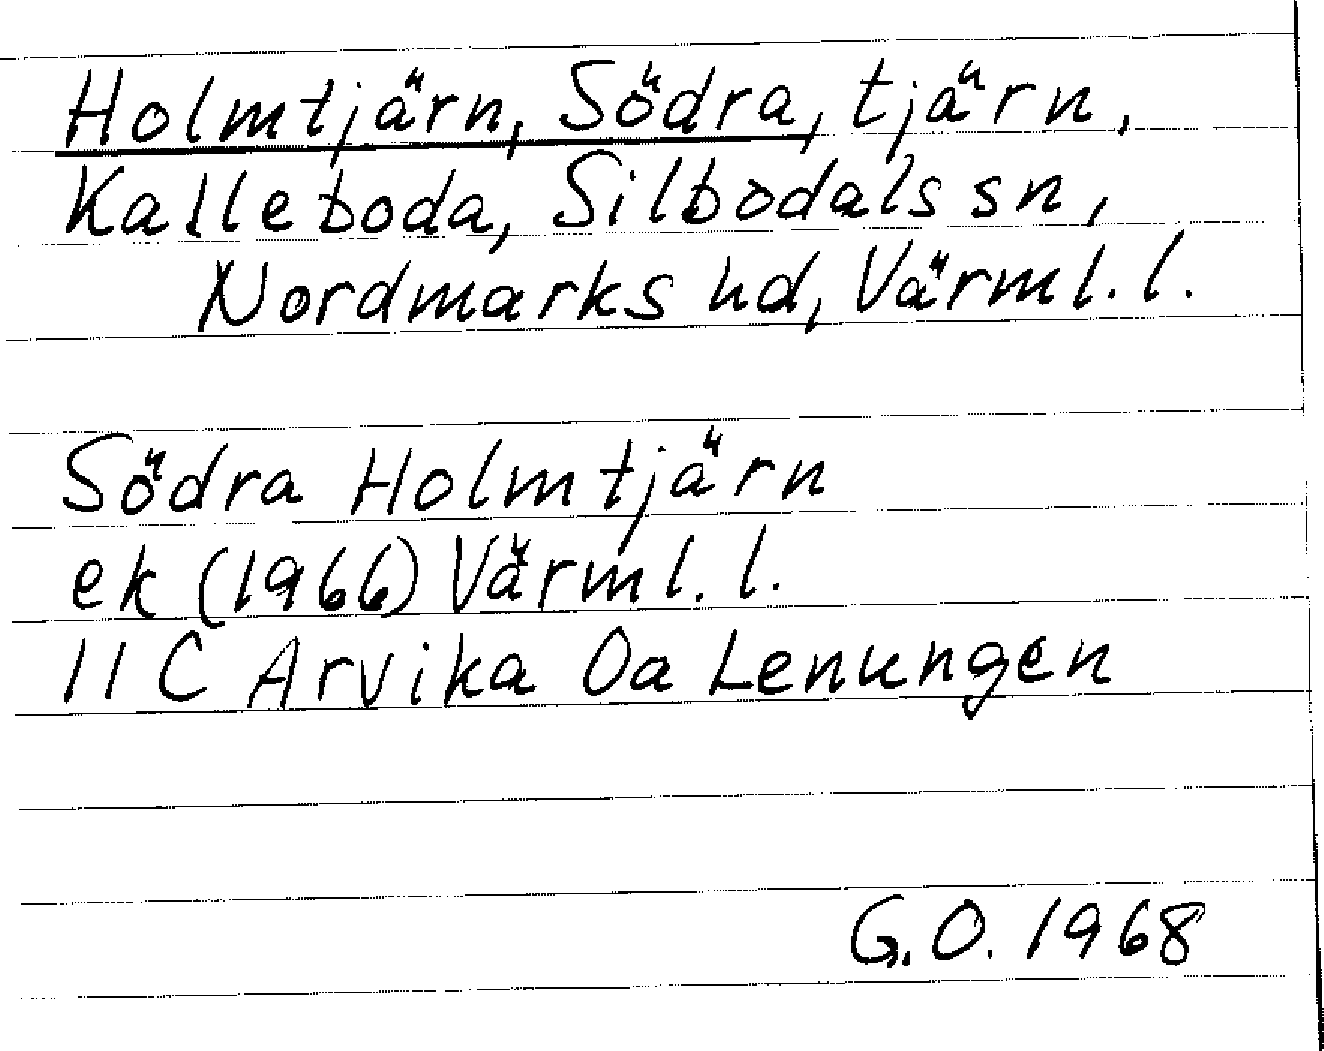 Holmtjärn, Södra, tjärn,
Kalleboda, Silbodals sn,
Nordmarks hd, Värml. l.
Södra Holmtjärn
ek (1966) Värml. l.
11 C Arvika 0a Lenungen
G.O. 1968